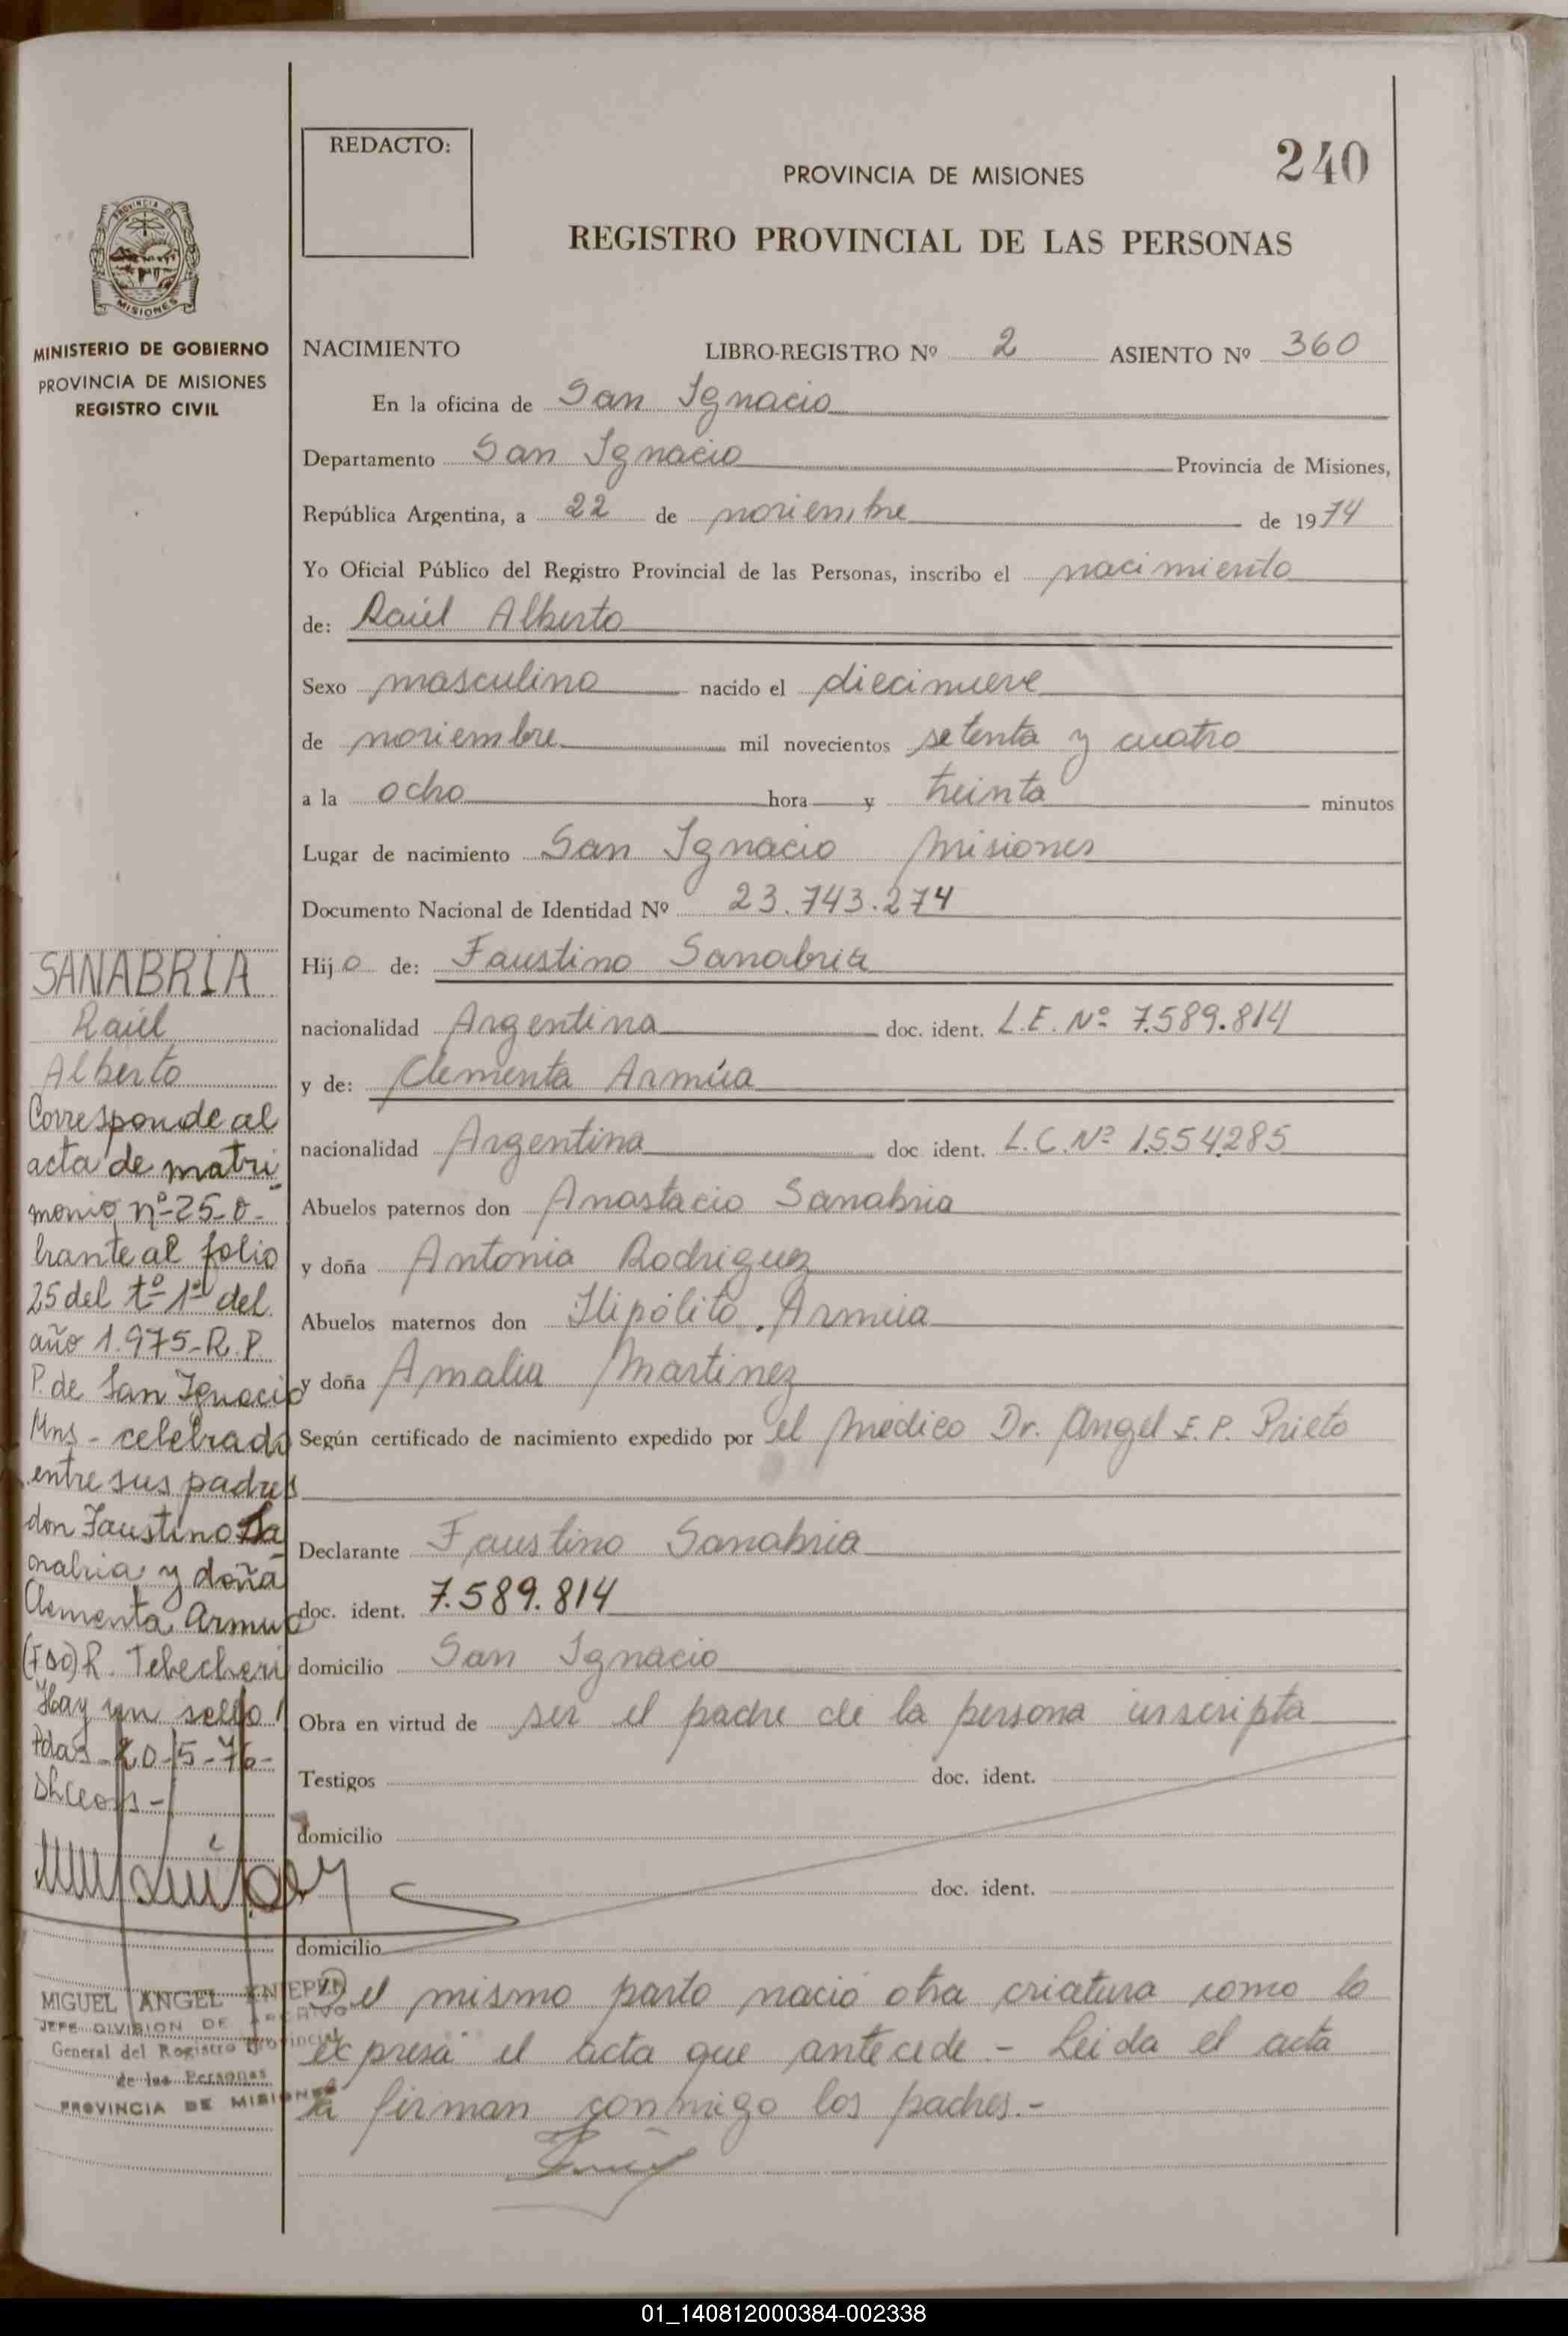 REDACTO:
PROVINCIA DE MISIONES
240
REGISTRO PROVINCIAL DE LAS PERSONAS
PROVINCIA DE
MISIONES
MINISTERIO DE GOBIERNO
PROVINCIA DE MISIONES
REGISTRO CIVIL
NACIMIENTO LIBRO-REGISTRO Nº 2 ASIENTO Nº 360
En la oficina de San Ignacio
Departamento San Ignacio Provincia de Misiones,
República Argentina, a 22 de noviembre de 1974
Yo Oficial Público del Registro Provincial de las Personas, inscribo el nacimiento
de: Raúl Alberto
Sexo masculino nacido el diecinueve
de noviembre mil novecientos setenta y cuatro
a la ocho hora y treinta minutos
Lugar de nacimiento San Ignacio Misiones
Documento Nacional de Identidad Nº 23.743.274
Hijo de: Faustino Sanabria
nacionalidad Argentina doc. ident. L.E. Nº 7.589.814
y de: Clementa Armúa
nacionalidad Argentina doc ident. L.C. Nº 1.554.285
Abuelos paternos don Anastacio Sanabria
y doña Antonia Rodriguez
Abuelos maternos don Hipólito Armúa
y doña Amalia Martinez
Según certificado de nacimiento expedido por el médico Dr. Angel E. P. Prieto
Declarante Faustino Sanabria
doc. ident. 7.589.814
domicilio San Ignacio
Obra en virtud de ser el padre de la persona inscripta
Testigos doc. ident.
domicilio
doc. ident.
domicilio
Del mismo parto nació otra criatura como lo
expresa el acta que antecede.- Leida el acta
la firman conmigo los padres.-
SANABRIA
Raúl
Alberto
Corresponde al
acta de matri
monio nº 25-o-
brante al folio
25 del tº 1º del
año 1.975-R.P.
P. de San Ignacio
Mns - celebrado
entre sus padres
don Faustino Sa
nabria y doña
Clementa Armua
(Fdo) R. Tebecheri
Hay un sello
Pdas 20-5-76-
MIGUEL ANGEL
JEFE DIVISION DE ARCHIVO
General del Registro Provincial
de las Personas
PROVINCIA DE MISIONES
01_140812000384-002338